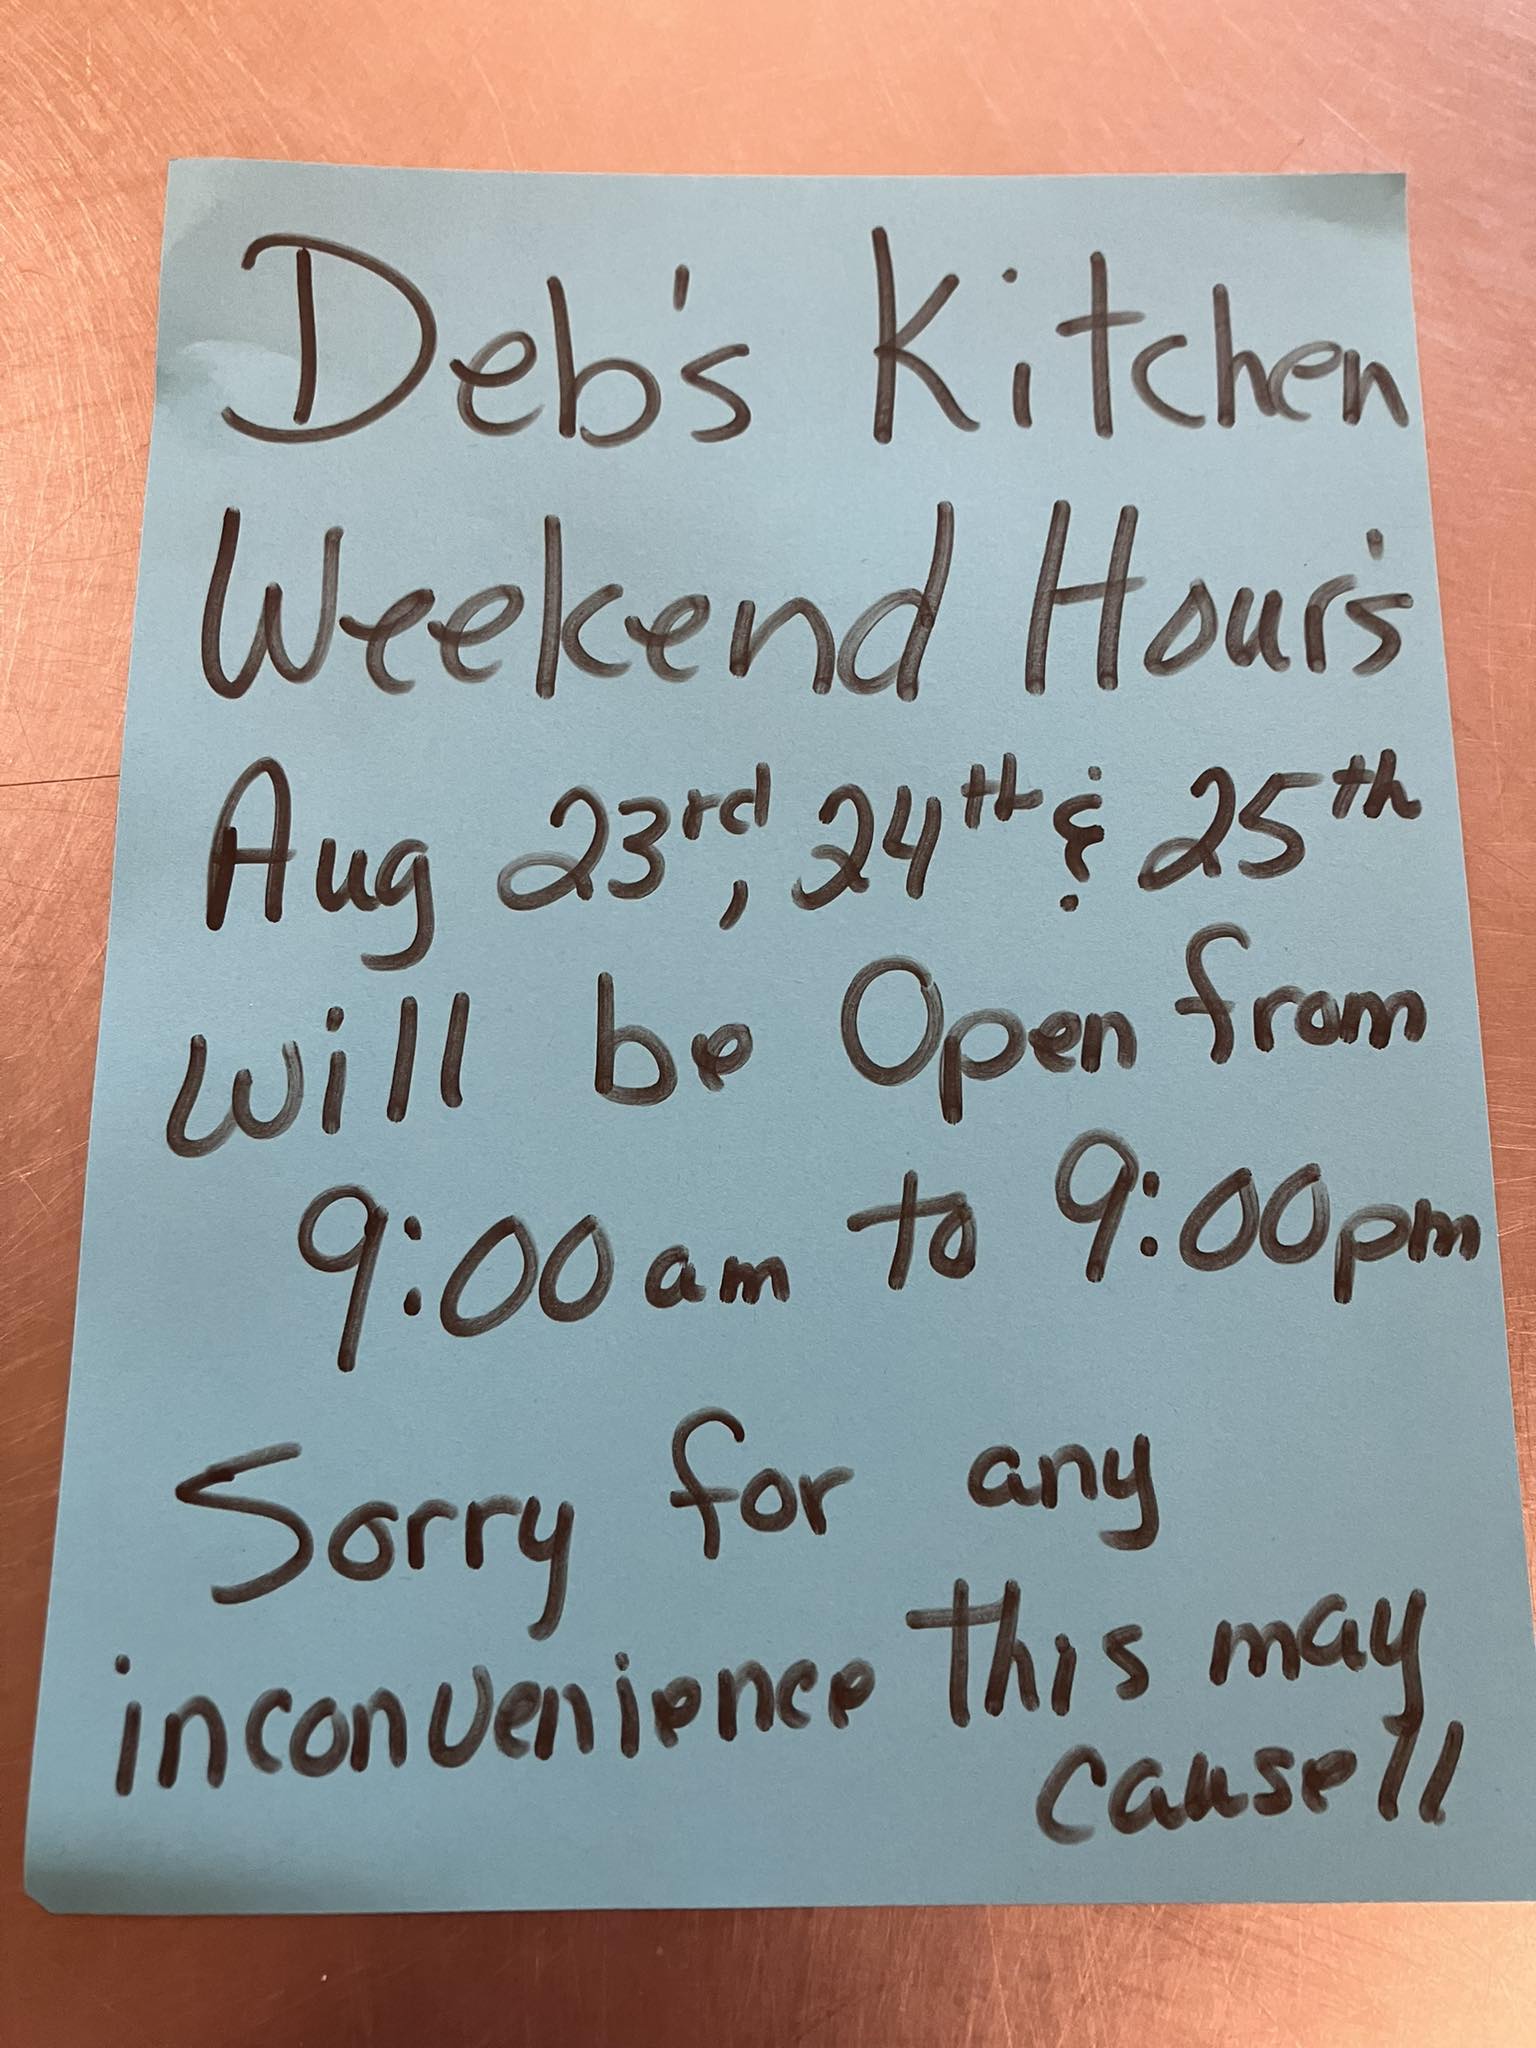 Deb's Kitchen
Weekend Hour's
Aug 23rd, 24th & 25th
will be Open from
9:00am to 9:00pm
Sorry for any
inconvenience this may
cause!!